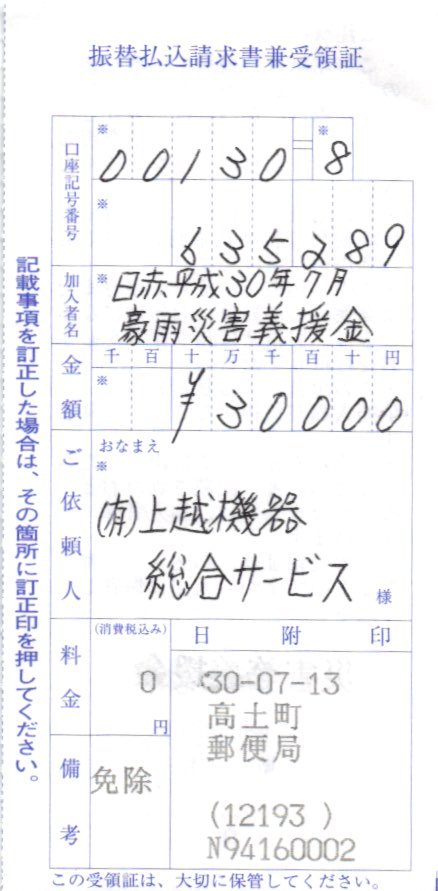 振替払込請求書兼受領証
口座記号番号
※
00130
※
8
※
635289
加入者名
※
日赤平成30年7月
豪雨災害義援金
金額
千百十万千百十円
※
¥30000
ご依頼人
おなまえ
※
(有)上越機器
総合サービス
様
料金
(消費税込み)
0
円
日附印
30-07-13
高土町
郵便局
(12193 )
N94160002
備考
免除
記載事項を訂正した場合は、その箇所に訂正印を押してください。
この受領証は、大切に保管してください。